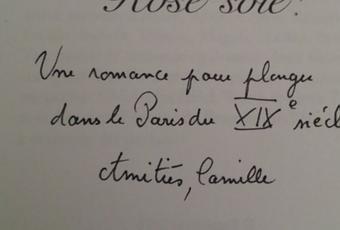 Rose soie.
Une romance pour plonger
dans le Paris du XIXe siècl
Amitiés, Camille